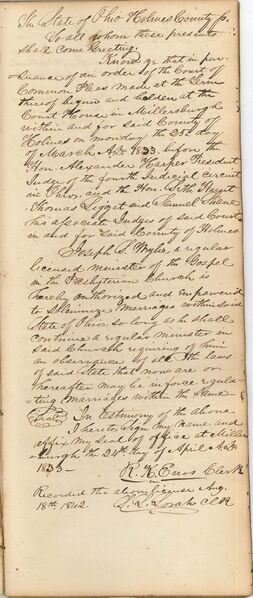 The State of Ohio Holmes County ss.
To all whom these presents
shall come Greeting.
Know ye that in pur-
suance of an order of the Court of
Common Pleas made at the Term
thereof begun and holden at the
Court House in Millersburgh
within and for said County of
Holmes on monday the 25th day
of March A.D. 1833. before the
Hon. Alexander Harper President
Judge of the fourth Judicial circuit
in Ohio, and the Hon. Seth Hunt
Thomas Legget and Samuel
his associate Judges of said Court
in and for said County of Holmes
Joseph B. Wylie, a regular
licensed minister of the Gospel
in the Presbyterian Church is
hereby authorized and impowered
to Solemnize Marriages within said
State of Ohio. so long as he shall
continue a regular minister in
said Church requiring of him
an observance of all the laws
of said State that now are or
hereafter may be in force regula
ting marriages within the Same
Seal In Testimony of the above
I hereto sign my name and
affix my seal of office at Millers
burgh the 24th day of April A.D.
1833 —
R. K. Enos Clerk
Recorded the above License Aug.
18th 1842. Clk